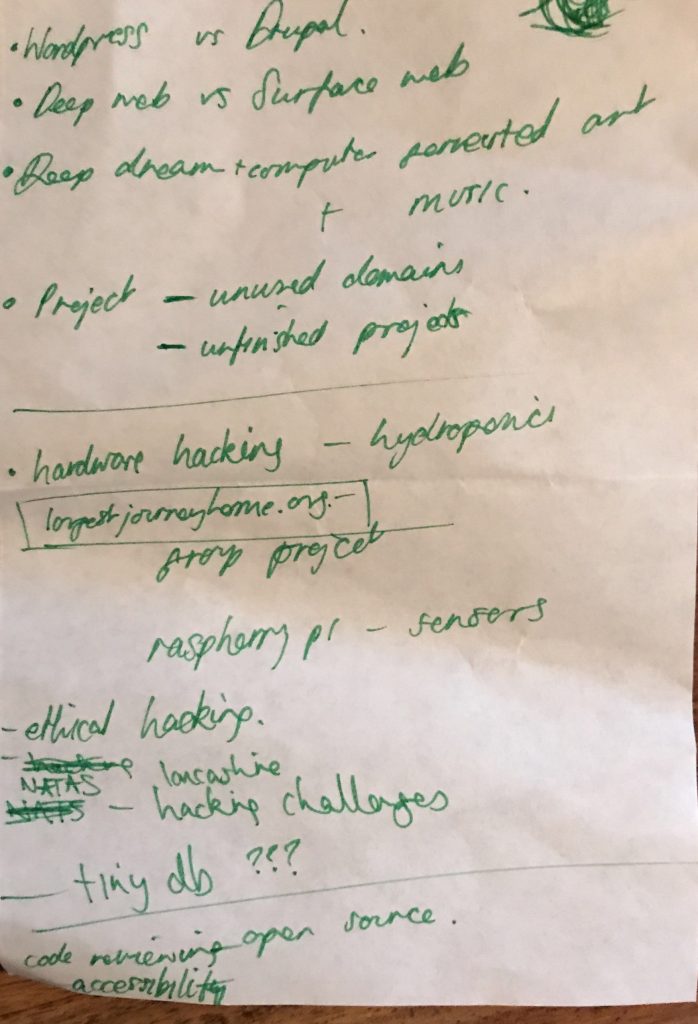 • Wordpress vs Drupal.
• Deep web vs Surface web
• Deep dream + computer generated art
+ music.
• Project — unused domains
— unfinished projects
• hardware hacking — hydroponics
longestjourneyhome.org. —
group project
raspberry pi — sensors
- ethical hacking.
- lancashire
NATAS — hacking challenges
— tiny db ???
code reviewing open source.
accessibility